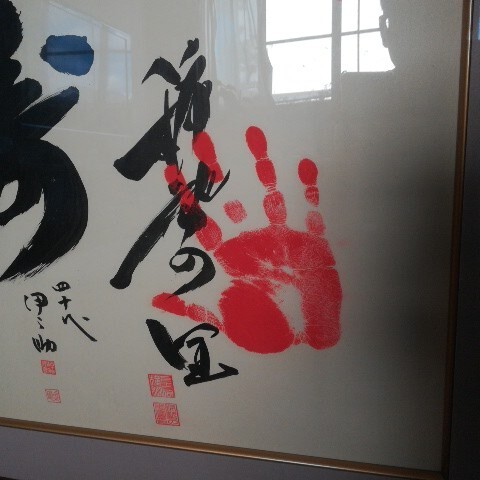 稀勢の里
四十代
伊之助